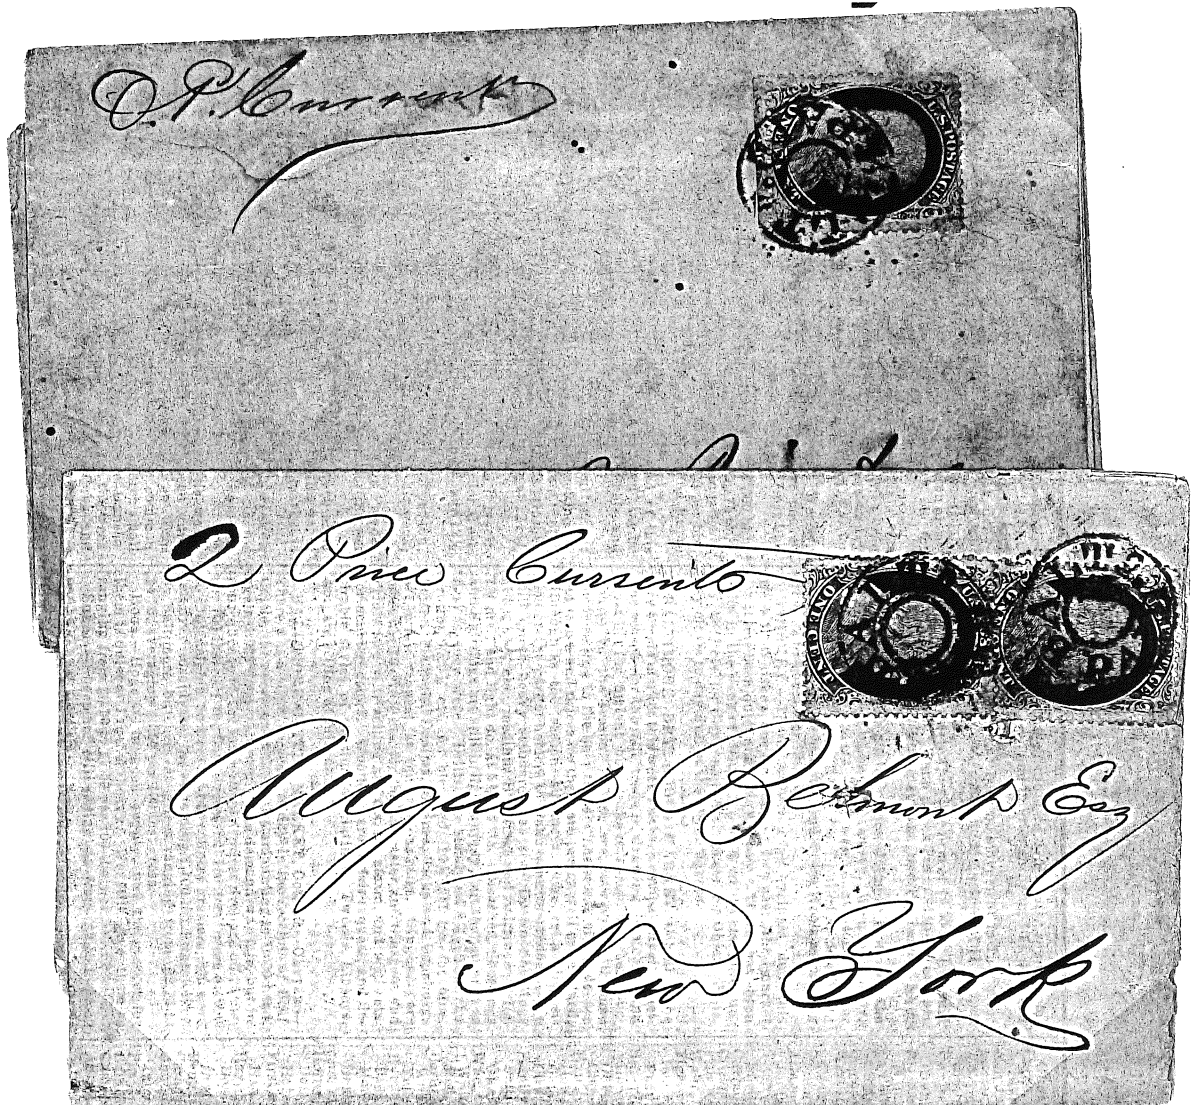 O. P. Current
U.S. POSTAGE
2 Price Currents
ONE CENT
PAID
August Belmont Esq
New York